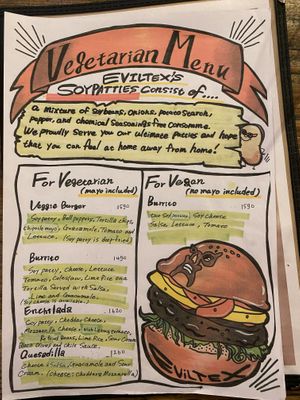 Vegetarian Menu
EVILTEX's
SOYPATTIES CONSIST OF....
a mixture of soybeans, onions, potato starch,
pepper, and chemical seasonings free consomme.
We proudly serve you our ultimate patties and hope
that you can feel at home away from home!
For Vegetarian
(mayo included)
Veggie Burger 1590
Soy patty, Bell peppers, Tortilla chips,
chipotle mayo, Guacamole, Tomato and
Lettuce. (Soy patty is deep fried)
Burrito 1490
Soy patty, Cheese, Lettuce
Tomato, Coleslaw, Lime Rice on a
Tortilla Served with Salsa,
Lime and Guacamole.
Enchilada 1620
Soy patty, Cheddar Cheese,
Mozzarella Cheese,
Black Olives and Chile Sauce
Quesadilla
Cheese, Salsa, Guacamole and Sour
Cream. (Cheese: Cheddar & Mozzarella)
For Vegan
(no mayo included)
Burrito 1590
Soy Cheese
Salsa, Lettuce, Tomato
EVILTEX